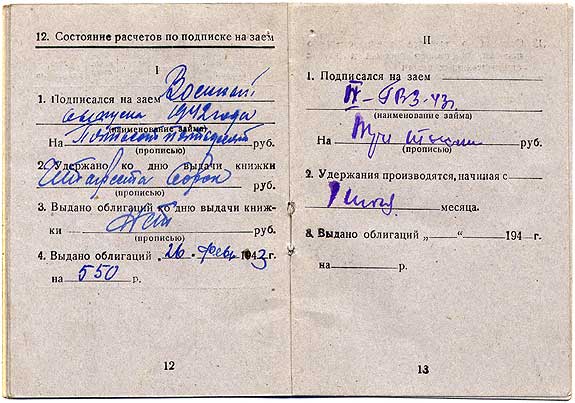 12. Состояние расчетов по подписке на заем
I
1. Подписался на заем Военный
выпуска 1942 года
(наименование займа)
На Пятьсот пятьдесят руб.
(прописью)
2. Удержано ко дню выдачи книжки
Четыреста сорок руб.
3. Выдано облигаций ко дню выдачи книж-
ки Нет руб.
(прописью)
4. Выдано облигаций „26 “ февр 1943 г.
на 550 р.
12
II
1. Подписался на заем
II-ГВЗ-43г.
(наименование займа)
На Три тысячи руб.
(прописью)
2. Удержания производятся, начиная с
месяца.
3. Выдано облигаций „ “ 194 г.
на р.
13